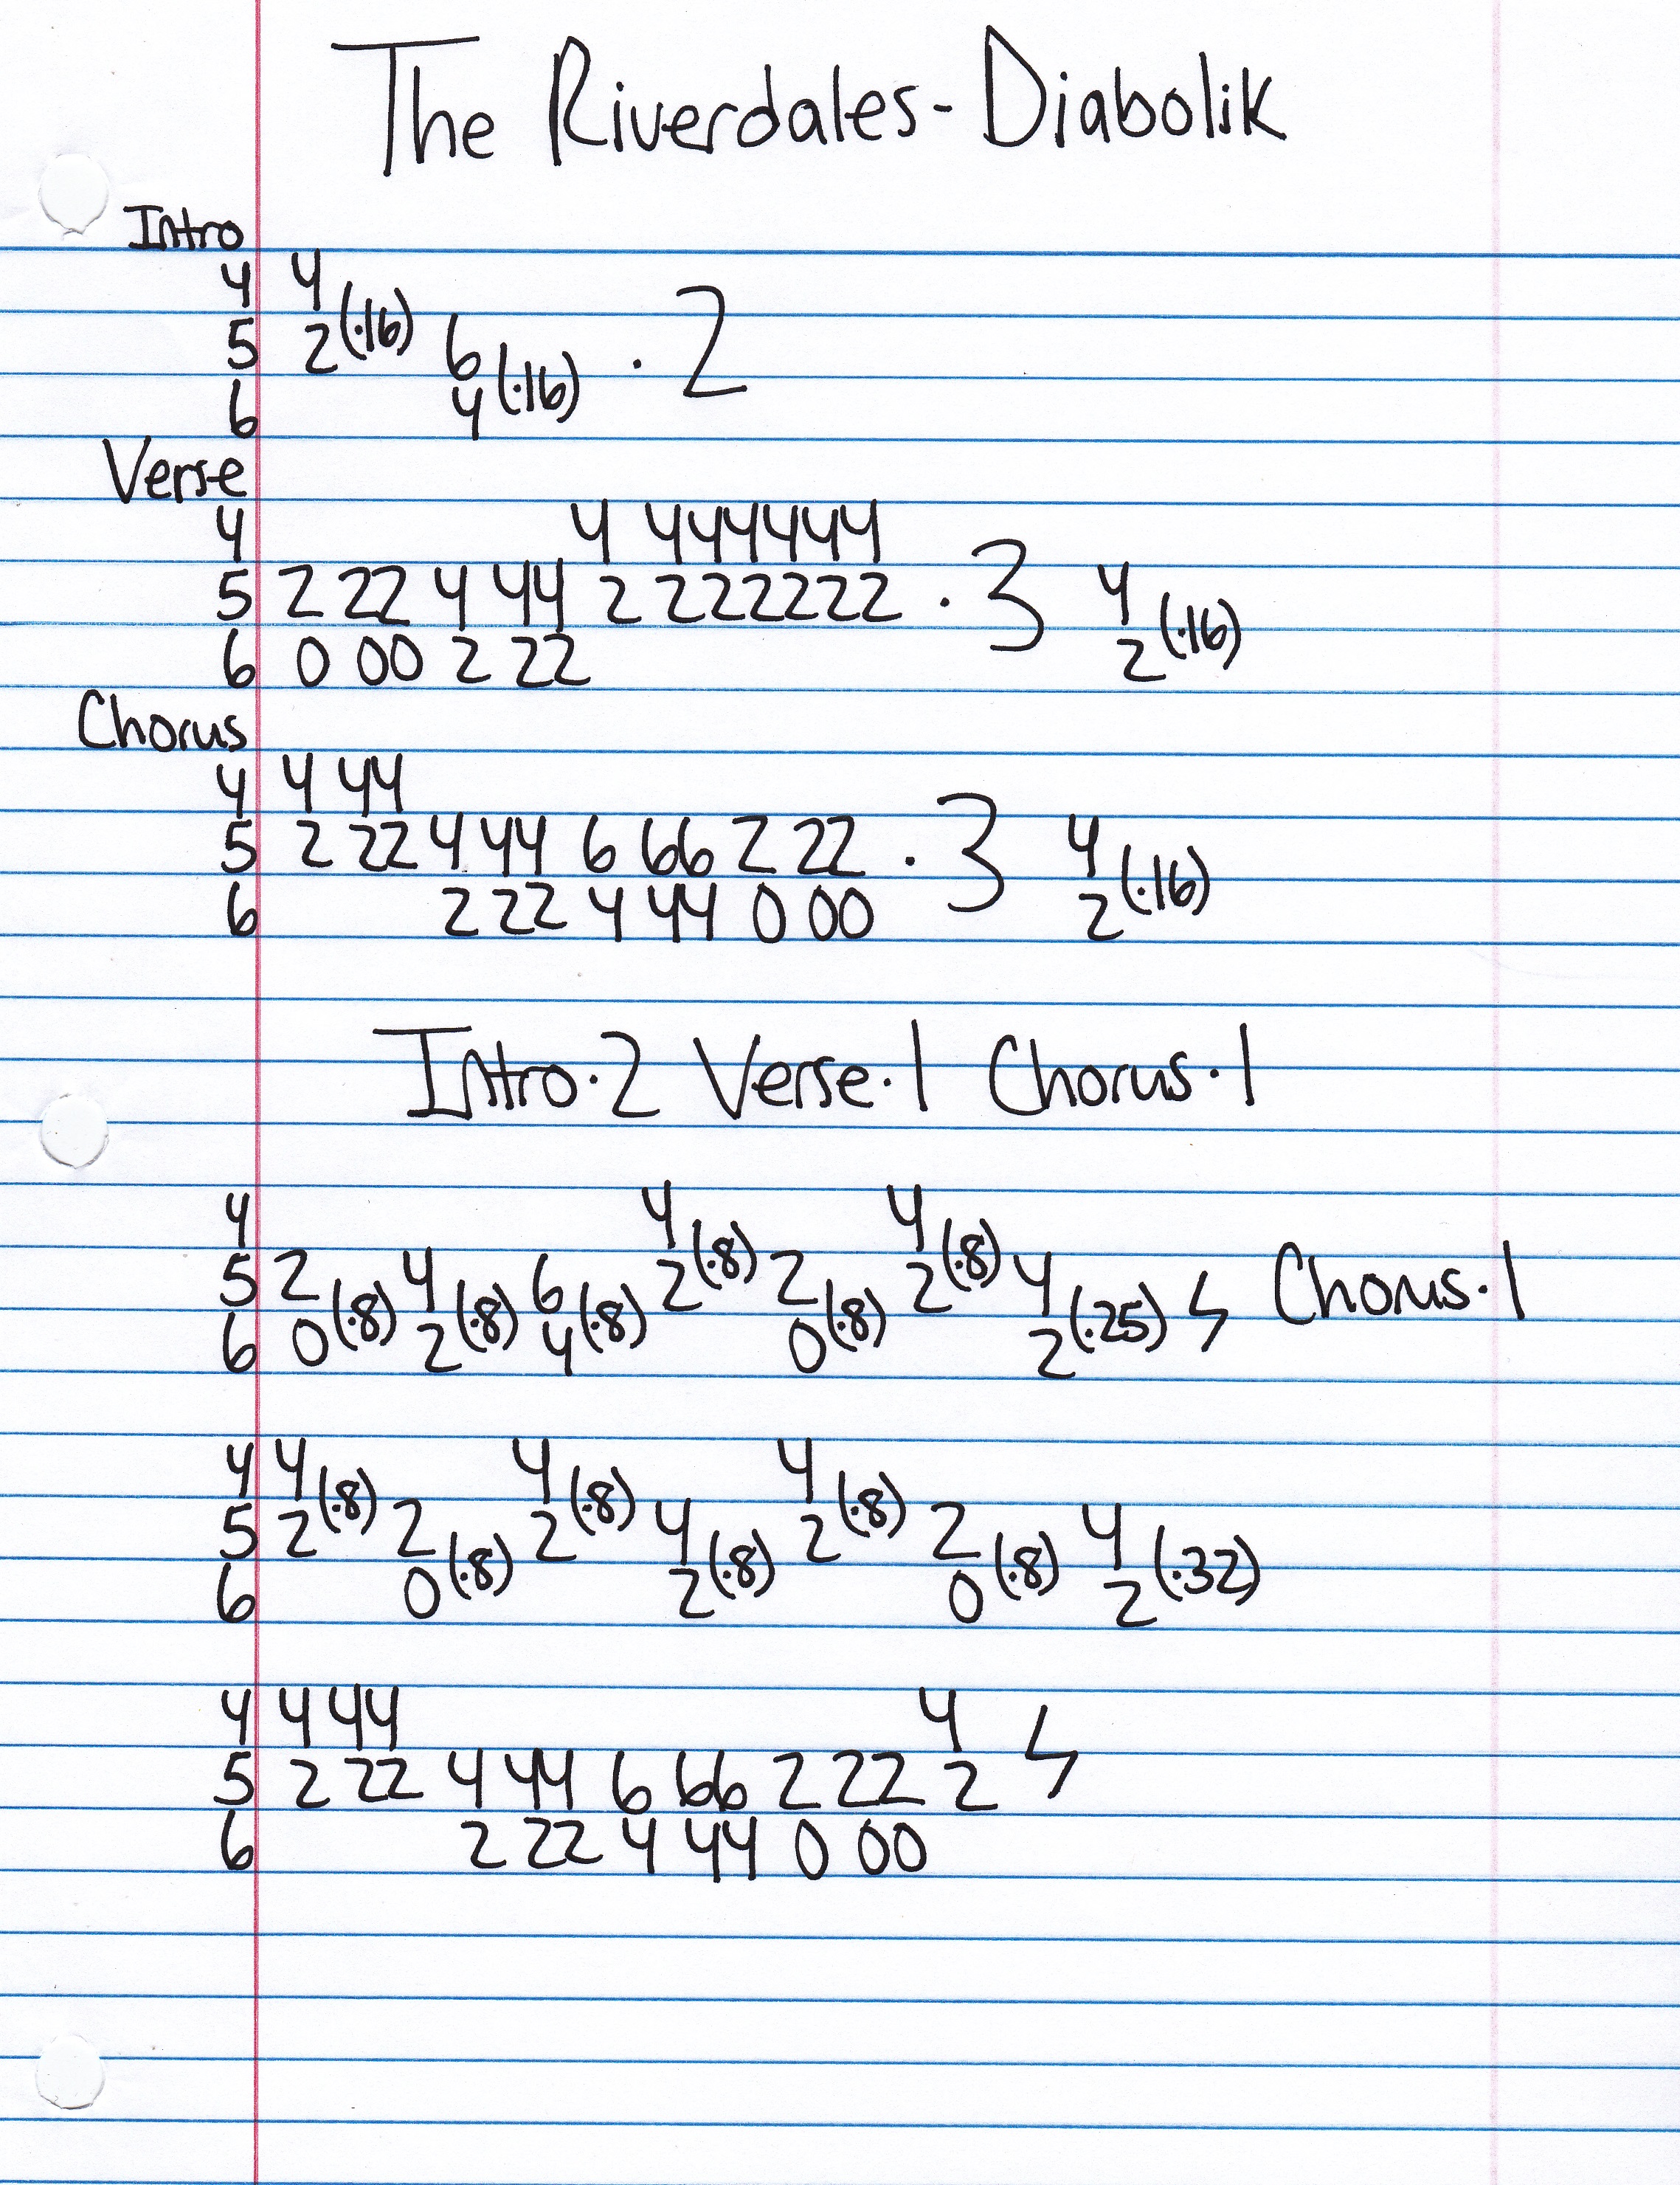 The Riverdales - Diabolik
Intro
4 4
5 2(·16) 6 · 2
6 4(·16)
Verse
4 4 444444
5 2 22 4 44 2 222222 · 3 4
6 0 00 2 22 2(·16)
Chorus
4 4 44
5 2 22 4 44 6 66 2 22 · 3 4
6 2 22 4 44 0 00 2(·16)
Intro·2 Verse·1 Chorus·1
4 4 4
5 2 4 6 2(·8) 2 2(·8) 4 Chorus·1
6 0(·8) 2(·8) 4(·8) 0(·8) 2(·25) ϟ
4 4 4 4
5 2(·8) 2 2(·8) 4 2(·8) 2 4
6 0(·8) 2(·8) 0(·8) 2(·32)
4 4 44 4
5 2 22 4 44 6 66 2 22 2 ϟ
6 2 22 4 44 0 00